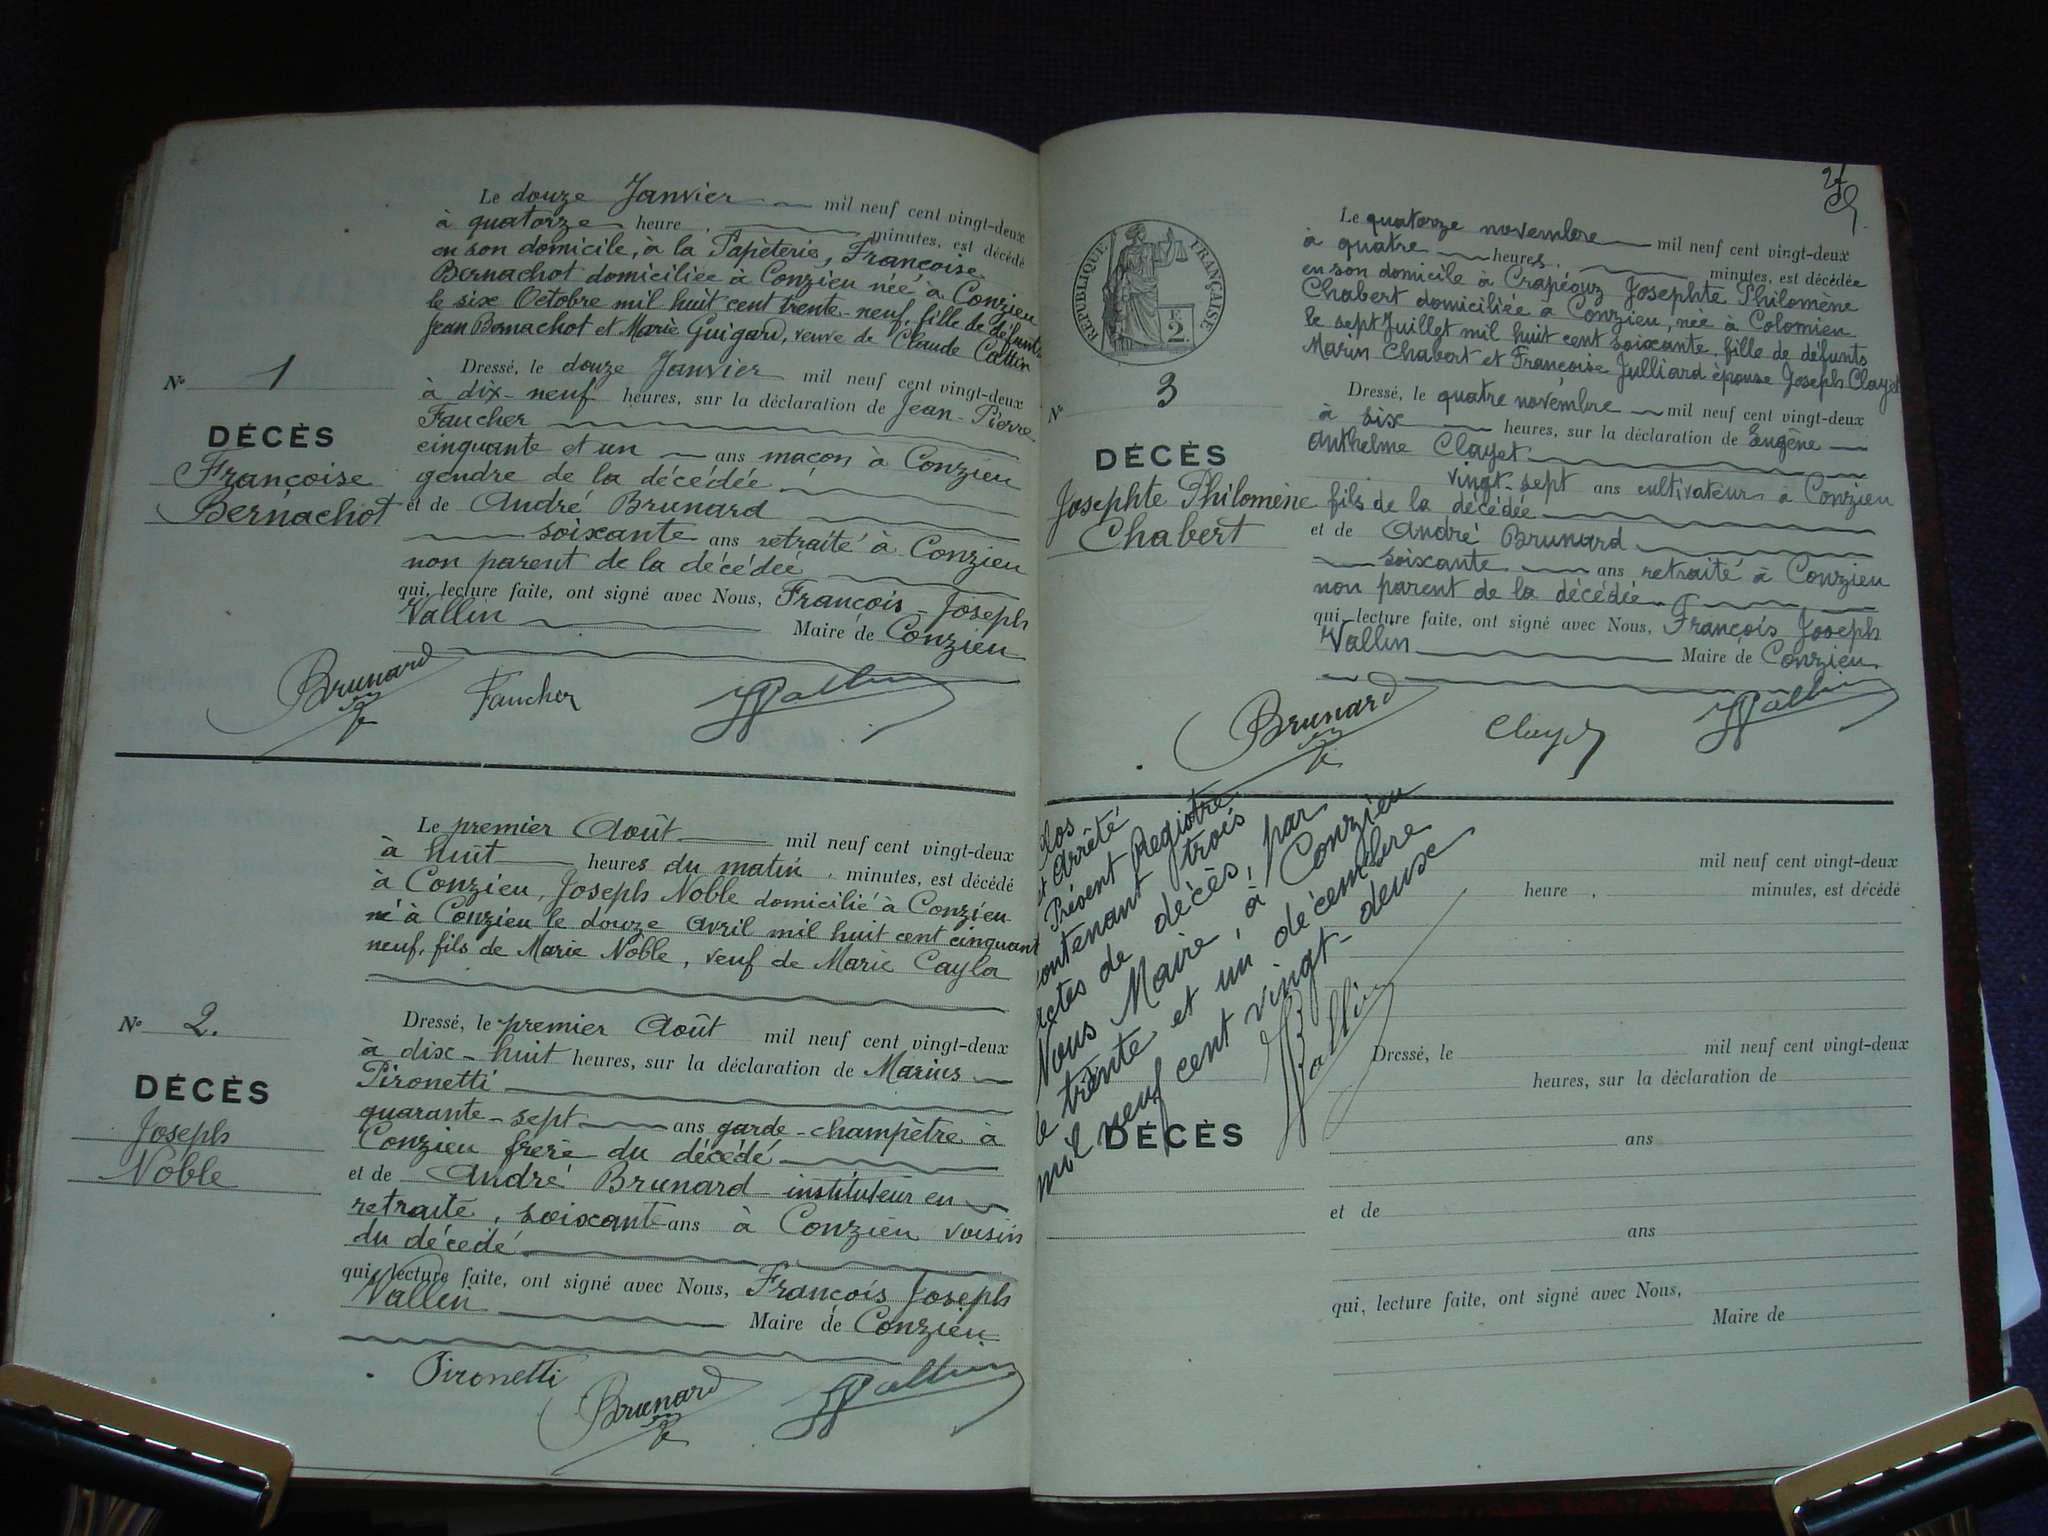 Le douze Janvier mil neuf cent vingt-deux
à quatorze heure , minutes, est décédé
en son domicile, à la Papèterie, Françoise
Bernachot domiciliée à Conzieu née à Conzieu
le six Octobre mil huit cent trente-neuf, fille de défunts
Jean Bernachot et Marie Guigard, veuve de Claude Cattin
N° 1
DÉCÈS
Françoise
Bernachot
Dressé, le douze Janvier mil neuf cent vingt-deux
à dix-neuf heures, sur la déclaration de Jean-Pierre
Faucher
cinquante et un ans maçon à Conzieu
gendre de la décédée
et de André Brunard
soixante ans retraité à Conzieu
non parent de la décédée
qui, lecture faite, ont signé avec Nous, François-Joseph
Vallin Maire de Conzieu
Brunard Faucher Vallin
Le premier Août mil neuf cent vingt-deux
à huit heures du matin , minutes, est décédé
à Conzieu, Joseph Noble domicilié à Conzieu
né à Conzieu le douze avril mil huit cent cinquant
neuf, fils de Marie Noble, veuf de Marie Cayla
N° 2.
DÉCÈS
Joseph
Noble
Dressé, le premier Août mil neuf cent vingt-deux
à dix-huit heures, sur la déclaration de Marius
Pironetti
quarante-sept ans garde-champêtre à
Conzieu frère du décédé
et de André Brunard instituteur en
retraite, soixante ans à Conzieu voisin
du décédé
qui, lecture faite, ont signé avec Nous, François Joseph
Vallin Maire de Conzieu
Pironetti Brunard Vallin
RÉPUBLIQUE FRANÇAISE
F.
2.
Le quatorze novembre mil neuf cent vingt-deux
à quatre heures , minutes, est décédée
en son domicile à Crapéouz Josephte Philomène
Chabert domiciliée à Conzieu, née à Colomieu
le sept Juillet mil huit cent soixante, fille de défunts
Marin Chabert et Françoise Julliard épouse Joseph Clayet
N° 3
DÉCÈS
Josephte Philomène
Chabert
Dressé, le quatre novembre mil neuf cent vingt-deux
à six heures, sur la déclaration de Eugène
Anthelme Clayet
vingt-sept ans cultivateur à Conzieu
fils de la décédée
et de André Brunard
soixante ans retraité à Conzieu
non parent de la décédée
qui, lecture faite, ont signé avec Nous, François Joseph
Vallin Maire de Conzieu
Brunard Clayet Vallin
clos
et Arrêté
Présent Registre
contenant trois
actes de décès, par
Nous Maire, à Conzieu
le trente et un décembre
mil neuf cent vingt-deux
Vallin
mil neuf cent vingt-deux
heure , minutes, est décédé
DÉCÈS
Dressé, le mil neuf cent vingt-deux
heures, sur la déclaration de
ans
et de
ans
qui, lecture faite, ont signé avec Nous,
Maire de